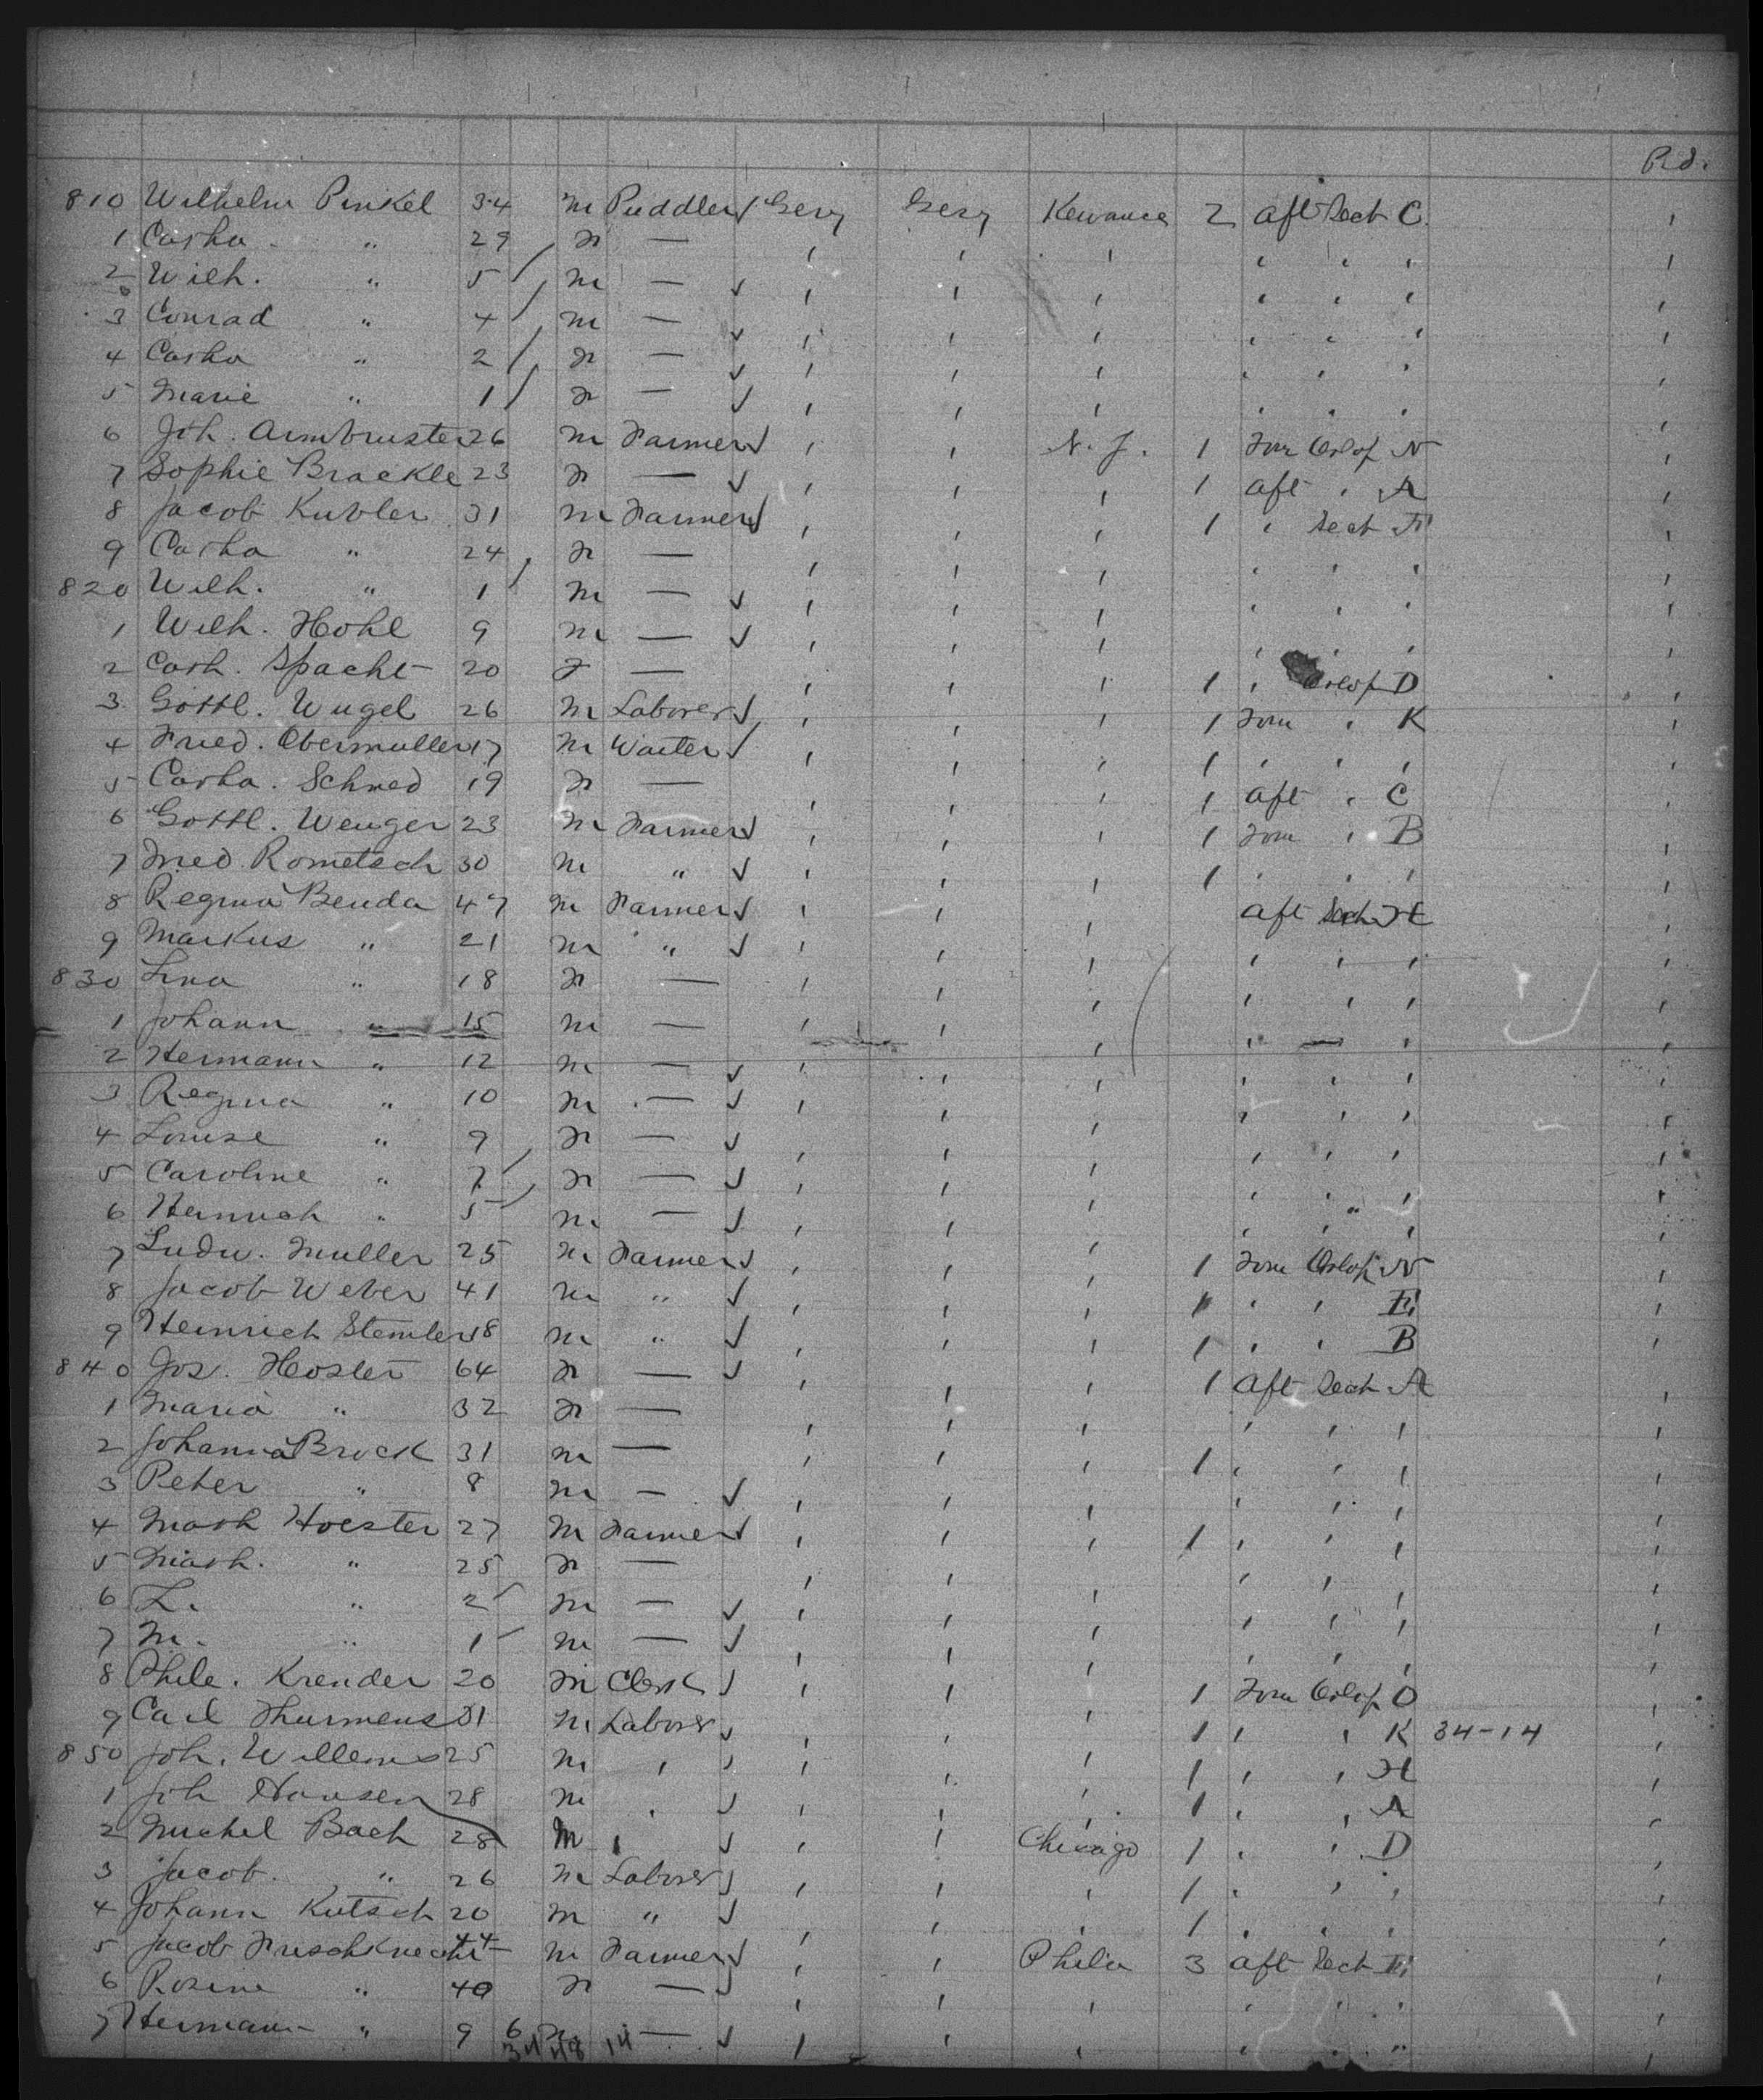 Pd.
810 Wilhelm Pinkel 34 m Puddler √ Gery Gery Kewanee 2 aft Deck C. '
1 Catha " 29 f — ' ' ' ' ' ' '
2 Wilh. " 5 / m — √ ' ' ' ' ' ' '
3 Conrad " 4 / m — √ ' ' ' ' ' ' '
4 Catha " 2 / f — √ ' ' ' ' ' ' '
5 Marie " 1 / f — √ ' ' ' ' ' ' '
6 Joh. Armbruster 26 m Farmer √ ' ' N. J. 1 For Orlop N '
7 Sophie Brackle 23 f — √ ' ' ' 1 aft ' A '
8 Jacob Kubler 31 m Farmer √ ' ' ' 1 ' Deck F '
9 Catha " 24 f — ' ' ' ' ' ' '
820 Wilh. " 1 / m — √ ' ' ' ' ' ' '
1 Wilh. Hohl 9 m — √ ' ' ' ' ' ' '
2 Cath. Spacht 20 f — ' ' ' 1 ' Orlop D '
3 Gottl. Wugel 26 m Laborer √ ' ' ' 1 For ' K '
4 Fried. Obermuller 17 m Waiter √ ' ' ' 1 ' ' ' '
5 Catha. Schmed 19 f — ' ' ' 1 aft ' C '
6 Gottl. Wenger 23 m Farmer √ ' ' ' 1 For ' B '
7 Fried Rometsch 30 m " √ ' ' ' 1 ' ' ' '
8 Regina Benda 47 m Farmer √ ' ' ' aft Deck H '
9 Markus " 21 m " √ ' ' ' ' ' ' '
830 Lina " 18 f — ' ' ' ' ' ' '
1 Johann " 15 m — ' ' ' ' — ' '
2 Hermann " 12 m — √ ' ' ' ' ' ' '
3 Regina " 10 m — √ ' ' ' ' ' ' '
4 Louise " 9 f — √ ' ' ' ' ' ' '
5 Caroline " 7 / f — √ ' ' ' ' ' ' '
6 Heinrich " 5 / m — √ ' ' ' ' ' ' '
7 Ludw. Muller 25 m Farmer √ ' ' ' 1 For Orlop N '
8 Jacob Weber 41 m " √ ' ' ' 1 ' ' E '
9 Heinrich Stemler 18 m " √ ' ' ' 1 ' ' B '
840 Jos. Hoster 64 f — √ ' ' ' 1 aft Deck A '
1 Maria " 32 f — ' ' ' ' ' ' '
2 Johanna Brock 31 m — ' ' ' 1 ' ' ' '
3 Peter " 8 m — √ ' ' ' ' ' ' '
4 Math Hoester 27 m Farmer √ ' ' ' 1 ' ' ' '
5 Math. " 25 f — ' ' ' ' ' ' '
6 L. " 2 / m — √ ' ' ' ' ' ' '
7 M. " 1 / m — √ ' ' ' ' ' ' '
8 Phile. Krender 20 m Clerk √ ' ' ' 1 For Orlop O '
9 Carl Thurmens 31 m Laborer √ ' ' ' 1 ' ' K 34-14 '
850 Joh. Willems 25 m ' √ ' ' ' 1 ' ' H '
1 Joh Hansen 28 m ' √ ' ' ' 1 ' ' A '
2 Michel Bach 28 m ' √ ' ' Chicago 1 ' ' D '
3 Jacob " 26 m Laborer √ ' ' ' 1 ' ' ' '
4 Johann Kutsch 20 m " √ ' ' ' 1 ' ' ' '
5 Jacob Frischknecht 44 m Farmer √ ' ' Phila 3 aft Deck E '
6 Rosine " 40 f — √ ' ' ' ' ' ' '
7 Hermann " 9 6 m — √ ' ' ' ' ' " '
34 48 14